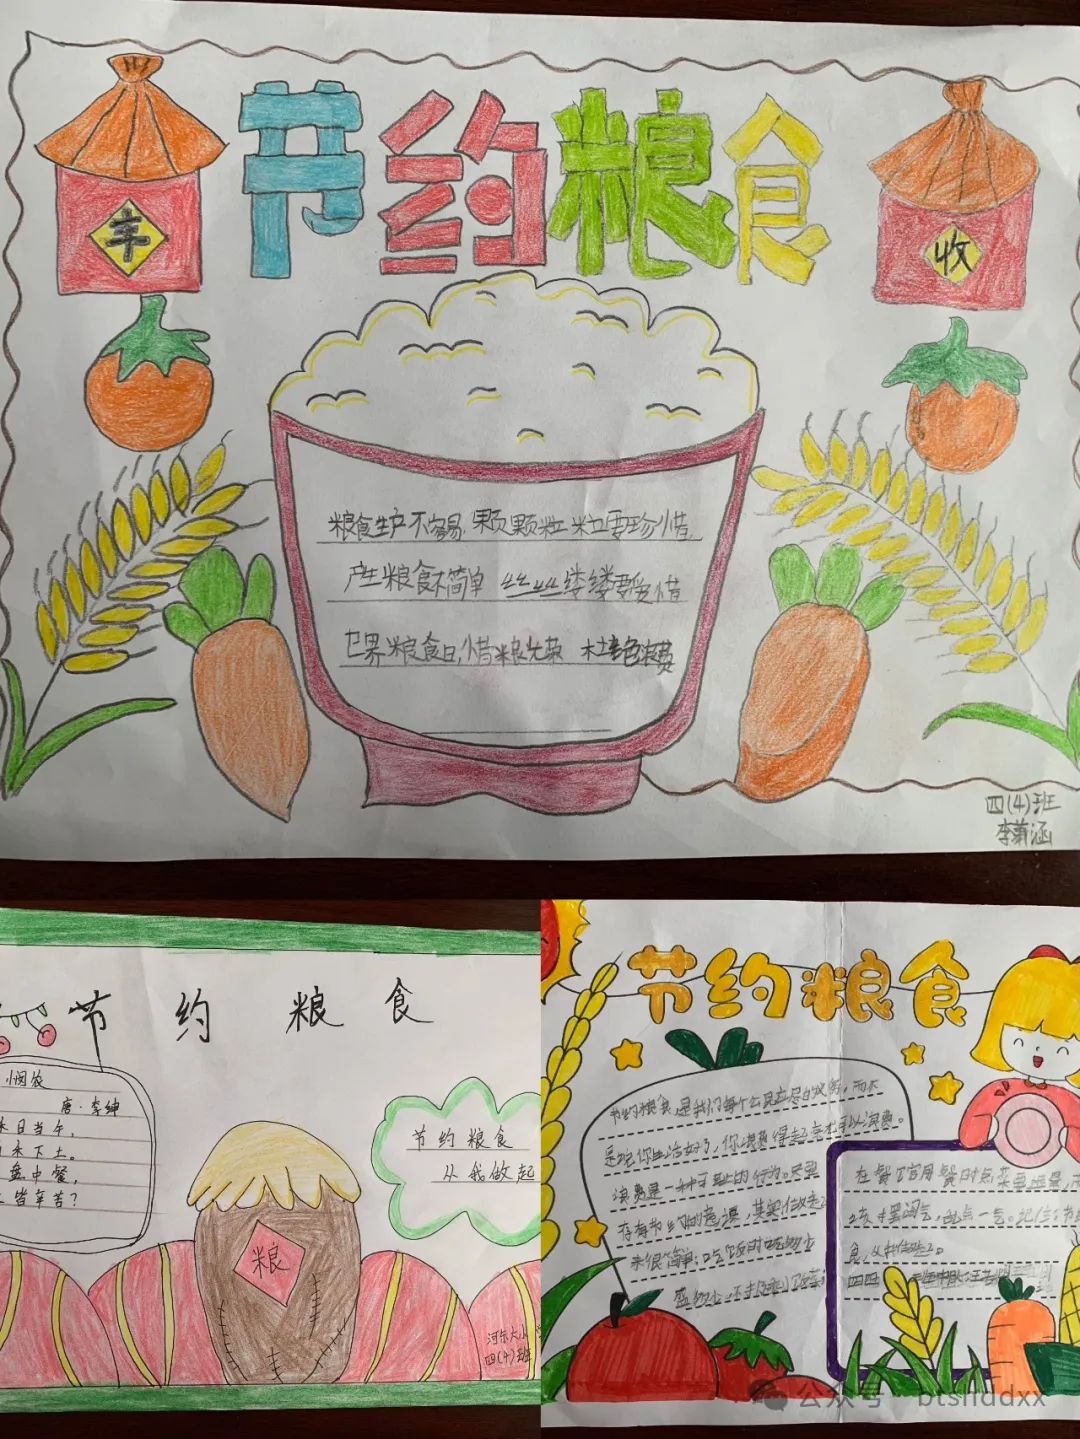 节约粮食
丰
收
粮食生产不容易,颗颗粒粒要珍惜,
产生粮食不简单 丝丝缕缕要爱惜
世界粮食日,惜粮光荣
四(4)班
李菊涵
节约粮食
小闵农
唐·李绅
禾日当午,
禾下土。
盘中餐,
皆辛苦?
节约粮食
从我做起
粮
河东大小
四(4)班
节约粮食
节约粮食,是我们每个公民应尽的义务,而不
是说你生活好了,你浪费得起
浪费是一种可耻的行为。只要
存有节约的意识,其实做起
来很简单:吃饭时吃多少
盛多少,不
在餐厅用餐时点菜要适量,
食,从我做起。
公众号·btshddxx